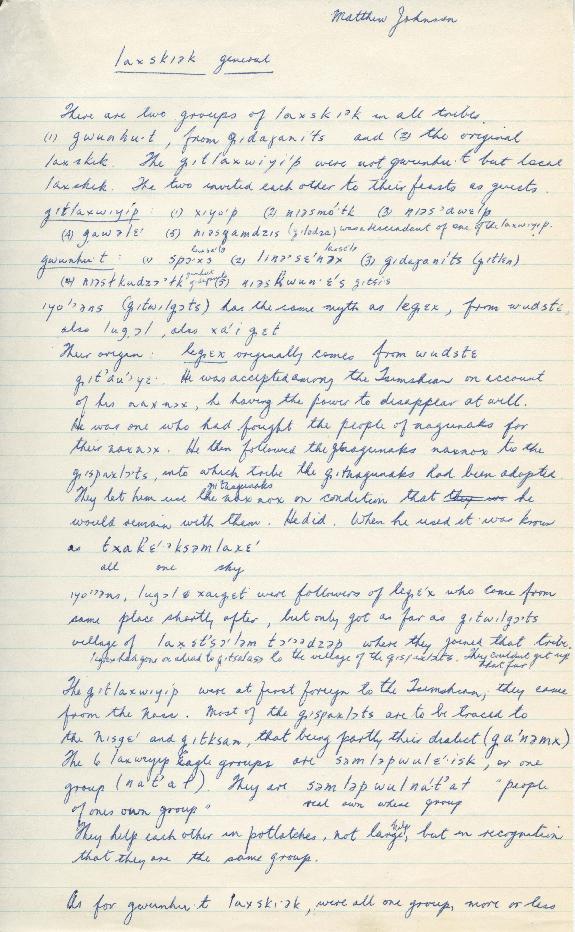 Matthew Johnson
laxskiək general
There are two groups of laxskiək in all tribes.
(1) gwunhu·t, from gidaganits and (2) the original
laxskek. The gitlaxwiyi'p were not gwunhu·t but local
laxskek. The two invited each other to their feasts as guests.
gitlaxwiyip : (1) xiyo'p (2) niəsmo'tk (3) niəs'awɛlp
(4) gawəlɛ' (5) niəsgamdzis (gilodza) was descendant of one of the laxwiyip.
gwunhu·t : (1) spɔ·xs (2) linə·sɛ'nəx (3) gidaganits (gitlen)
(5) niəskwun·ɛ's gitsis
iyo''əns (gitwilgɔts) has the same myth as legɛx, from wudstɛ,
also lugɔl, also xa'i gɛt
Their origin : legɛx originally comes from wudstɛ
git'au'yɛ. He was accepted among the Tsimshian on account
of his naxnɔx, he having the power to disappear at will.
He was one who had fought the people of nagunaks for
their naxnɔx. He then followed the gitnagunaks naxnox to the
gispaxlɔts, into which tribe the gitnagunaks had been adopted.
They let him use the gitnagunaks nax nox on condition that he
would remain with them. He did. When he used it was known
as txakɛ'əksəmlaxɛ'
all one sky
iyo''əns, lugɔl & xaigɛt were followers of legɛ'x who come from
same place shortly after, but only got as far as gitwilgɔts
village of laxst'sɔ'ləm tsɔ'ədzəp where they joined that tribe.
legɛx had gone on ahead to gitsɛlasɔ to the village of the gispaxlɔts. They couldnt get up
that far.
The gitlaxwiyip were at first foreign to the Tsimshian; they came
from the Nass. Most of the gispaxlɔts are to be traced to
the nisgɛ' and gitksan, that being partly their dialect (ga'nəmx)
The 6 laxwiyip Eagle groups are səmləpwulɛ·isk, or one
group (na't'at). They are səmləpwulna't'at "people
of ones own group" real own whose group
They help each other in potlatches, not largely, but in recognition
that they are the same group.
As for gwunhu·t laxskiək, were all one group, more or less